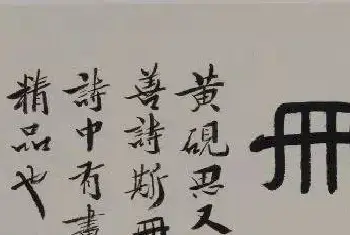 冊
黄硯思又
善詩斯冊
詩中有畫
精品也